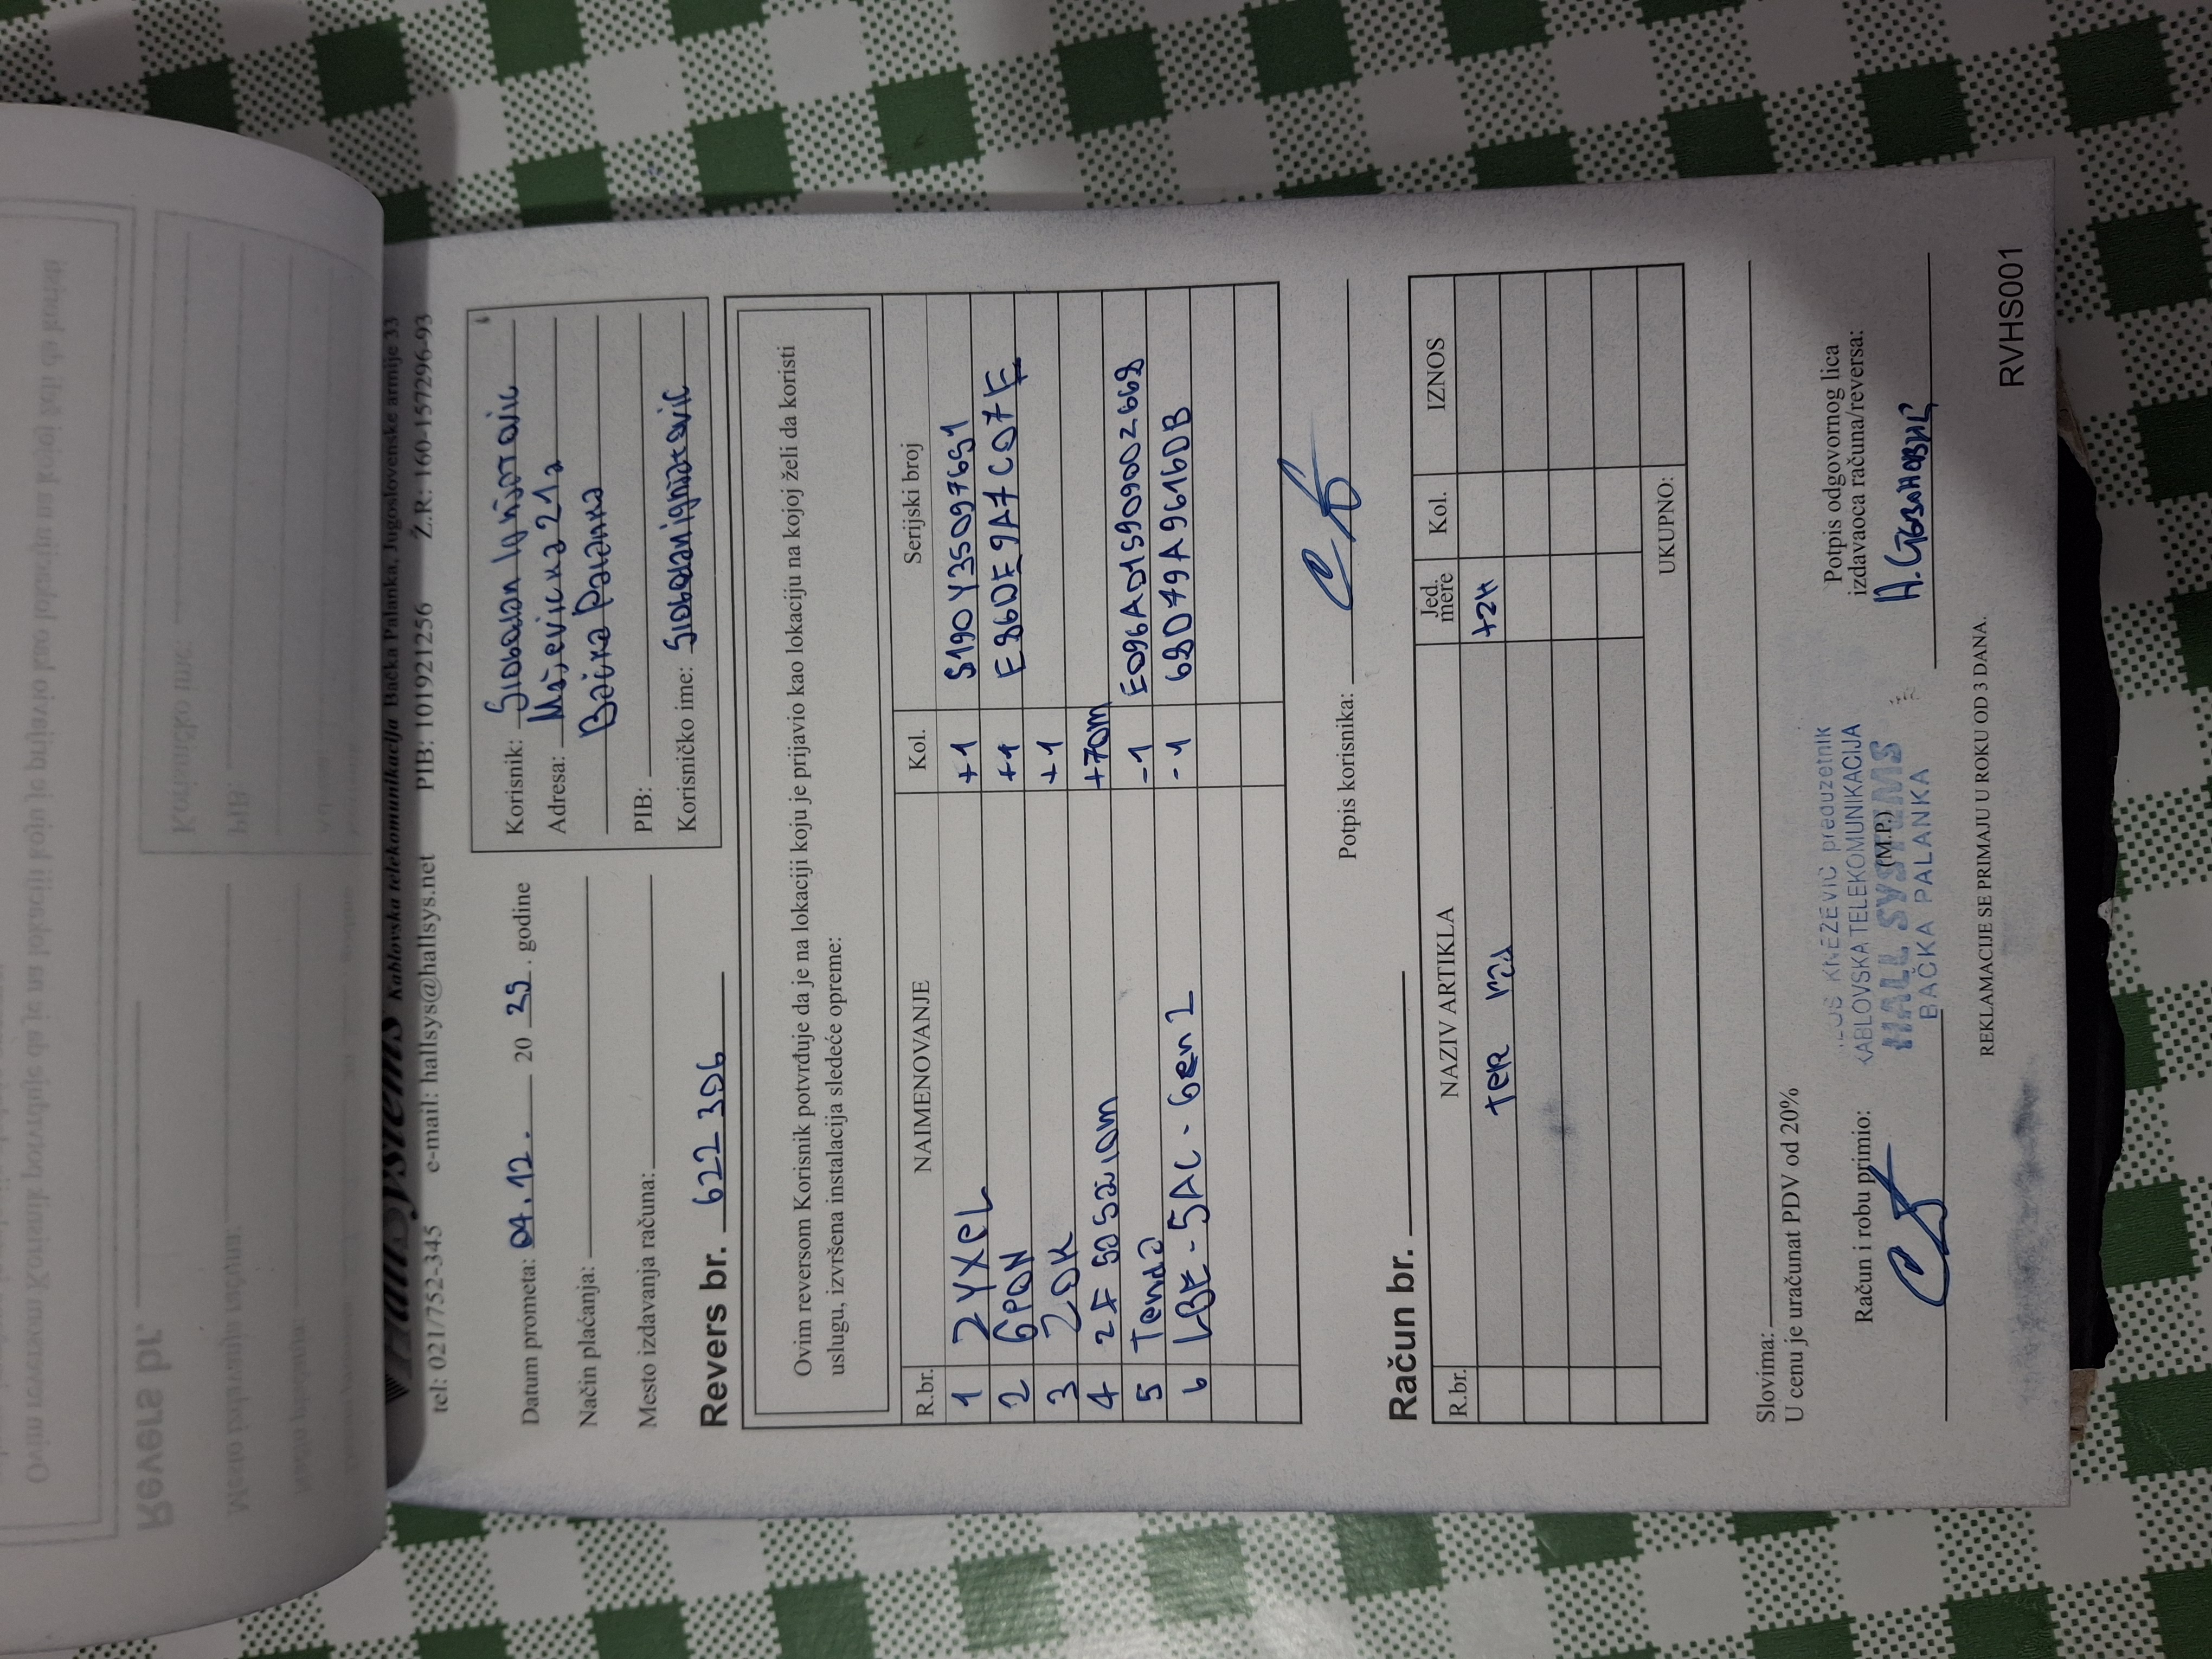 HallSystems Kablovska telekomunikacija Bačka Palanka, Jugoslovenske armije 33
tel: 021/752-345 e-mail: hallsys@hallsys.net PIB: 101921256 Ž.R: 160-157296-93
Datum prometa: 04.12. 20 25. godine
Način plaćanja:
Mesto izdavanja računa:
Korisnik: Slobodan
Adresa: Majevicka 21a
Bačka Palanka
PIB:
Korisničko ime: slobodanignjatovic
Revers br. 622 306
Ovim reversom Korisnik potvrđuje da je na lokaciji koju je prijavio kao lokaciju na kojoj želi da koristi
uslugu, izvršena instalacija sledeće opreme:
R.br. NAIMENOVANJE Kol. Serijski broj
1 ZYXEL +1 S190Y35097651
2 GPON +1 E86DE9A7C07E
3 ZOK +1
4 +70m
5 Tenda -1 E096A015909002668
6 LBE-5AC-Gen2 -1 68D79A9616DB
Potpis korisnika:
Račun br.
R.br. NAZIV ARTIKLA Jed. mere Kol. IZNOS
ter +2h
UKUPNO:
Slovima:
U cenu je uračunat PDV od 20%
Račun i robu primio:
KNEŽEVIĆ preduzetnik
KABLOVSKA TELEKOMUNIKACIJA
HALL SYSTEMS
(M.P.)
BAČKA PALANKA
Potpis odgovornog lica
izdavaoca računa/reversa:
REKLAMACIJE SE PRIMAJU U ROKU OD 3 DANA.
RVHS001